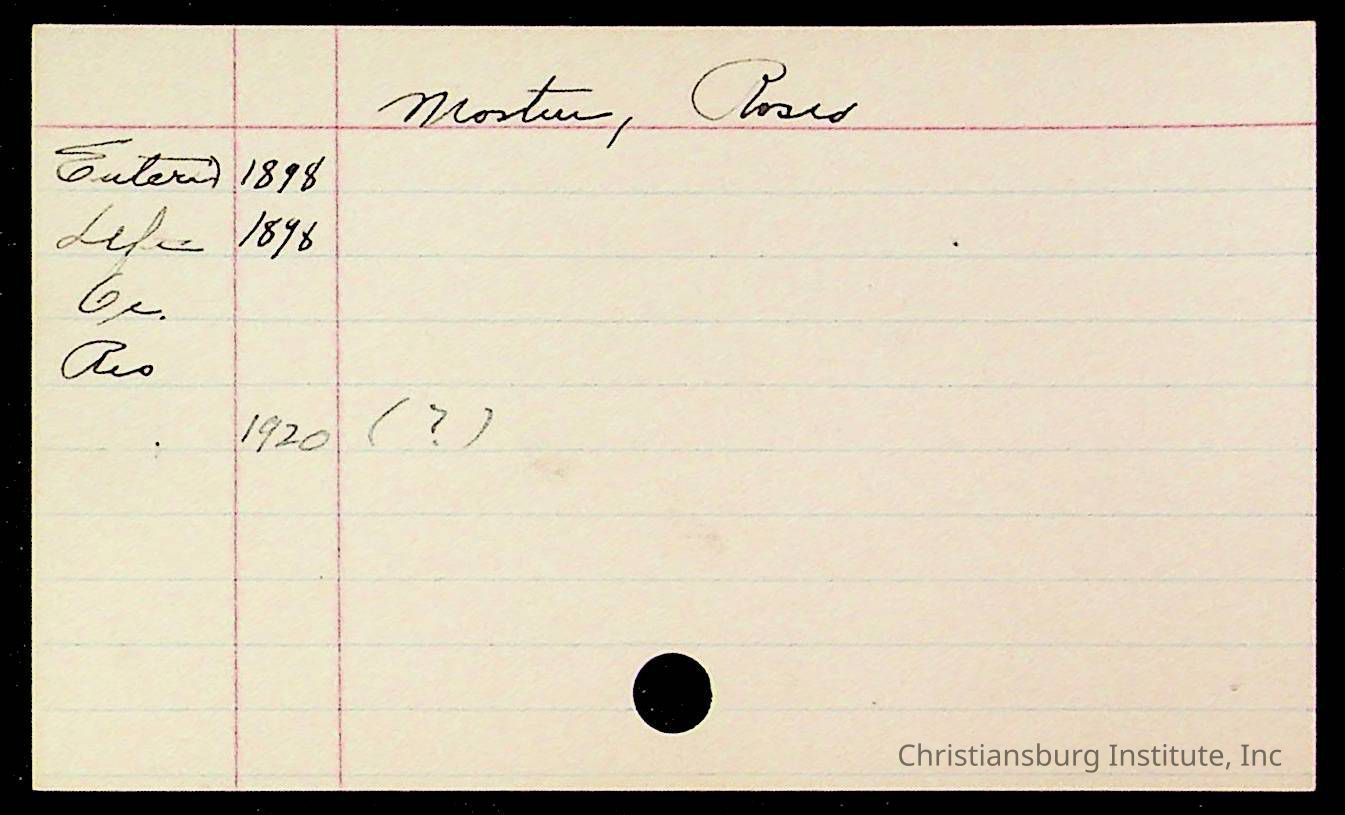 Mosten, Rosa
Entered 1898
Left 1898
Gr.
Res
1920 (?)
Christiansburg Institute, Inc